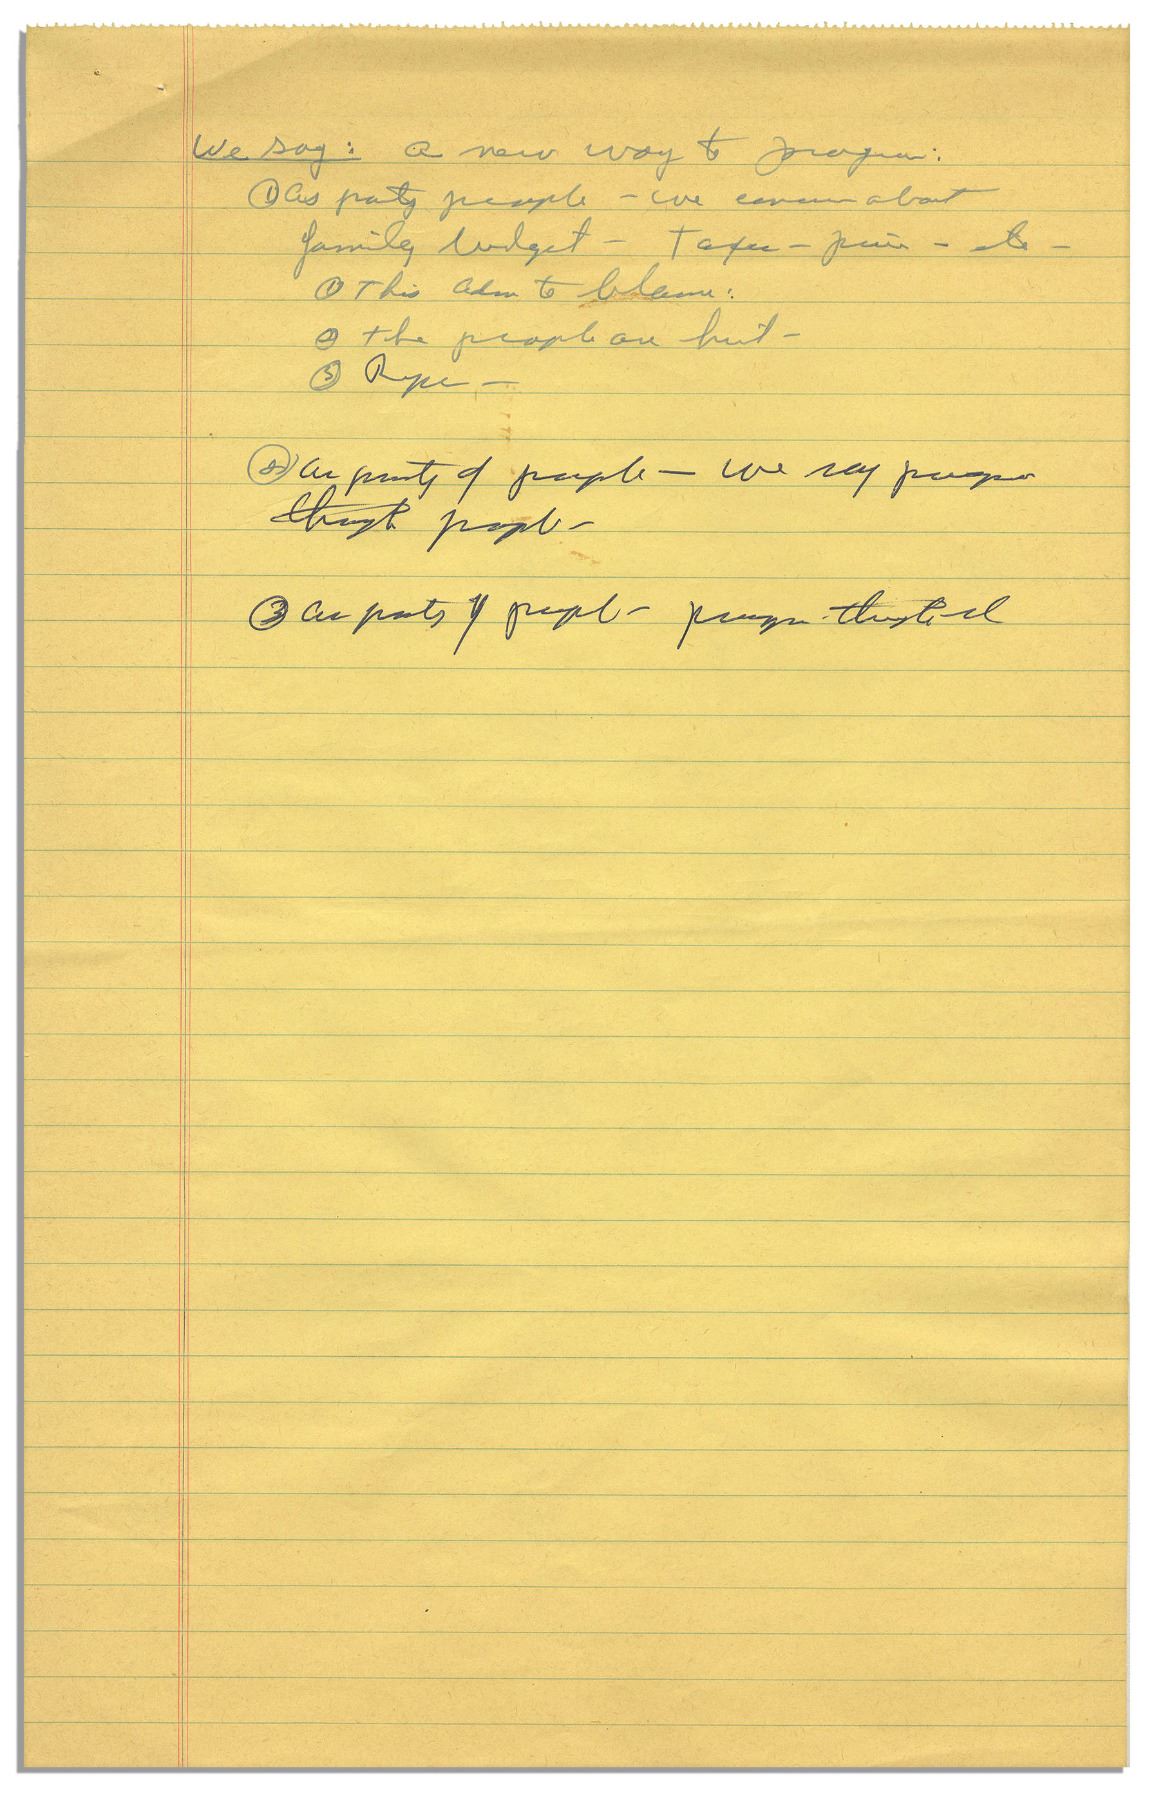 We say: a new way to progress:
① As party people - we concern about
family budget - Taxes - prices - etc -
① This Adm to blame:
② the people are hurt -
③
② As party of people - we say progress
through people -
③ As party of people - progress through